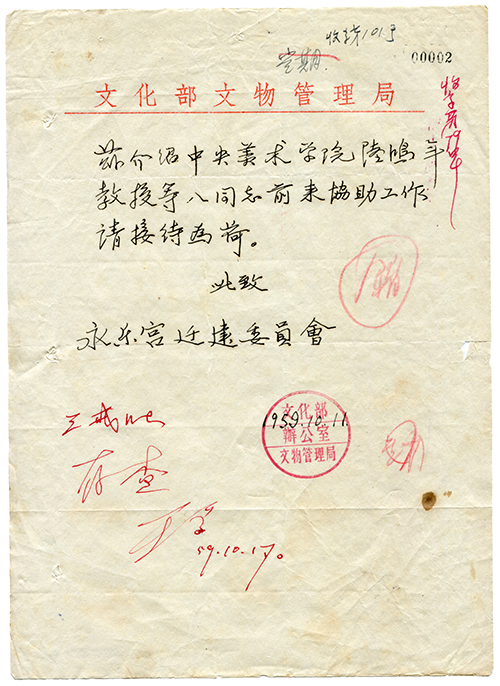 收藏101号
00002
文化部文物管理局
茲介绍中央美术学院陸鴻年
教授等八同志前来協助工作
請接待為荷。
此致
永乐宫迁建委員會
1959.10.11.
文化部
辦公室
文物管理局
存查
59.10.17。